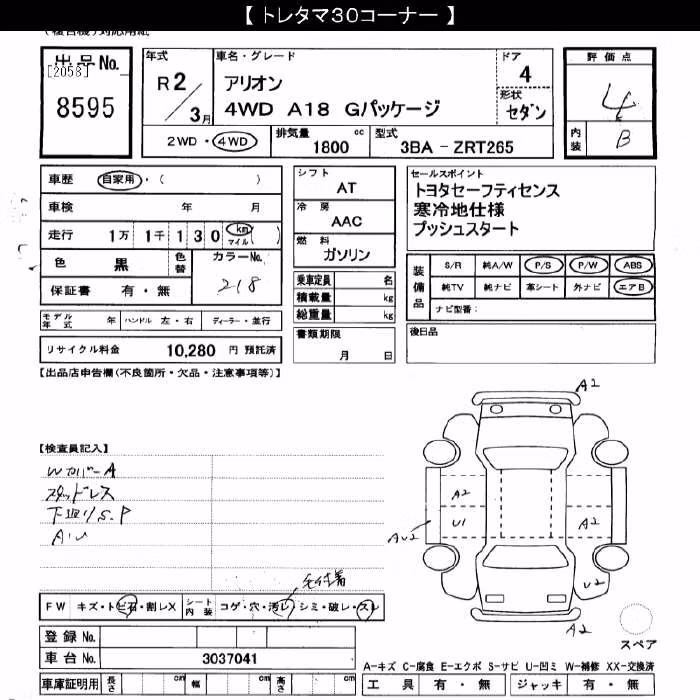 【 トレタマ30コーナー 】
(複合機)対応用紙
出品No.
[2058]
8595
年式
R 2/3月
車名・グレード
アリオン
4WD A18 Gパッケージ
ドア
4
形状
セダン
2WD・4WD
排気量 1800 cc
型式 3BA - ZRT265
評価点
4
内装 B
車歴 自家用・( )
車検 年 月
走行 1万 1千 1 3 0 km マイル ( )
色 黒 色替 カラーNo. 218
保証書 有・無
モデル年式 年 ハンドル 左・右 ディーラー・並行
リサイクル料金 10,280 円 預託済
シフト
AT
冷房
AAC
燃料
ガソリン
乗車定員 名
積載量 kg
総重量 kg
書類期限
月 日
セールスポイント
トヨタセーフティセンス
寒冷地仕様
プッシュスタート
装備品
S/R 純A/W P/S P/W ABS
純TV 純ナビ 革シート 外ナビ エアB
ナビ型番:
後日品
【出品店申告欄(不良箇所・欠品・注意事項等)】
【検査員記入】
Wカバー A
スタッドレス
下廻りS.P
A.U
毛付着
FW キズ・トビ石・割レX シート内装 コゲ・穴・汚レ・シミ・破レ・スレ
登録 No.
車台 No. 3037041
車庫証明用 長さ cm 幅 cm 高さ cm
A2
A2
U1
AU2
A2
U2
A2
スペア
A-キズ C-腐食 E-エクボ S-サビ U-凹ミ W-補修 XX-交換済
工具 有・無 ジャッキ 有・無